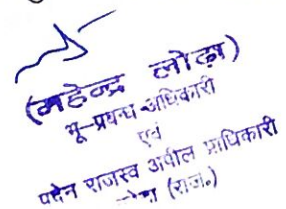 (महेन्द्र लोढ़ा)
भू-प्रबन्ध अधिकारी
एवं
पदेन राजस्व अपील प्राधिकारी
(राज.)